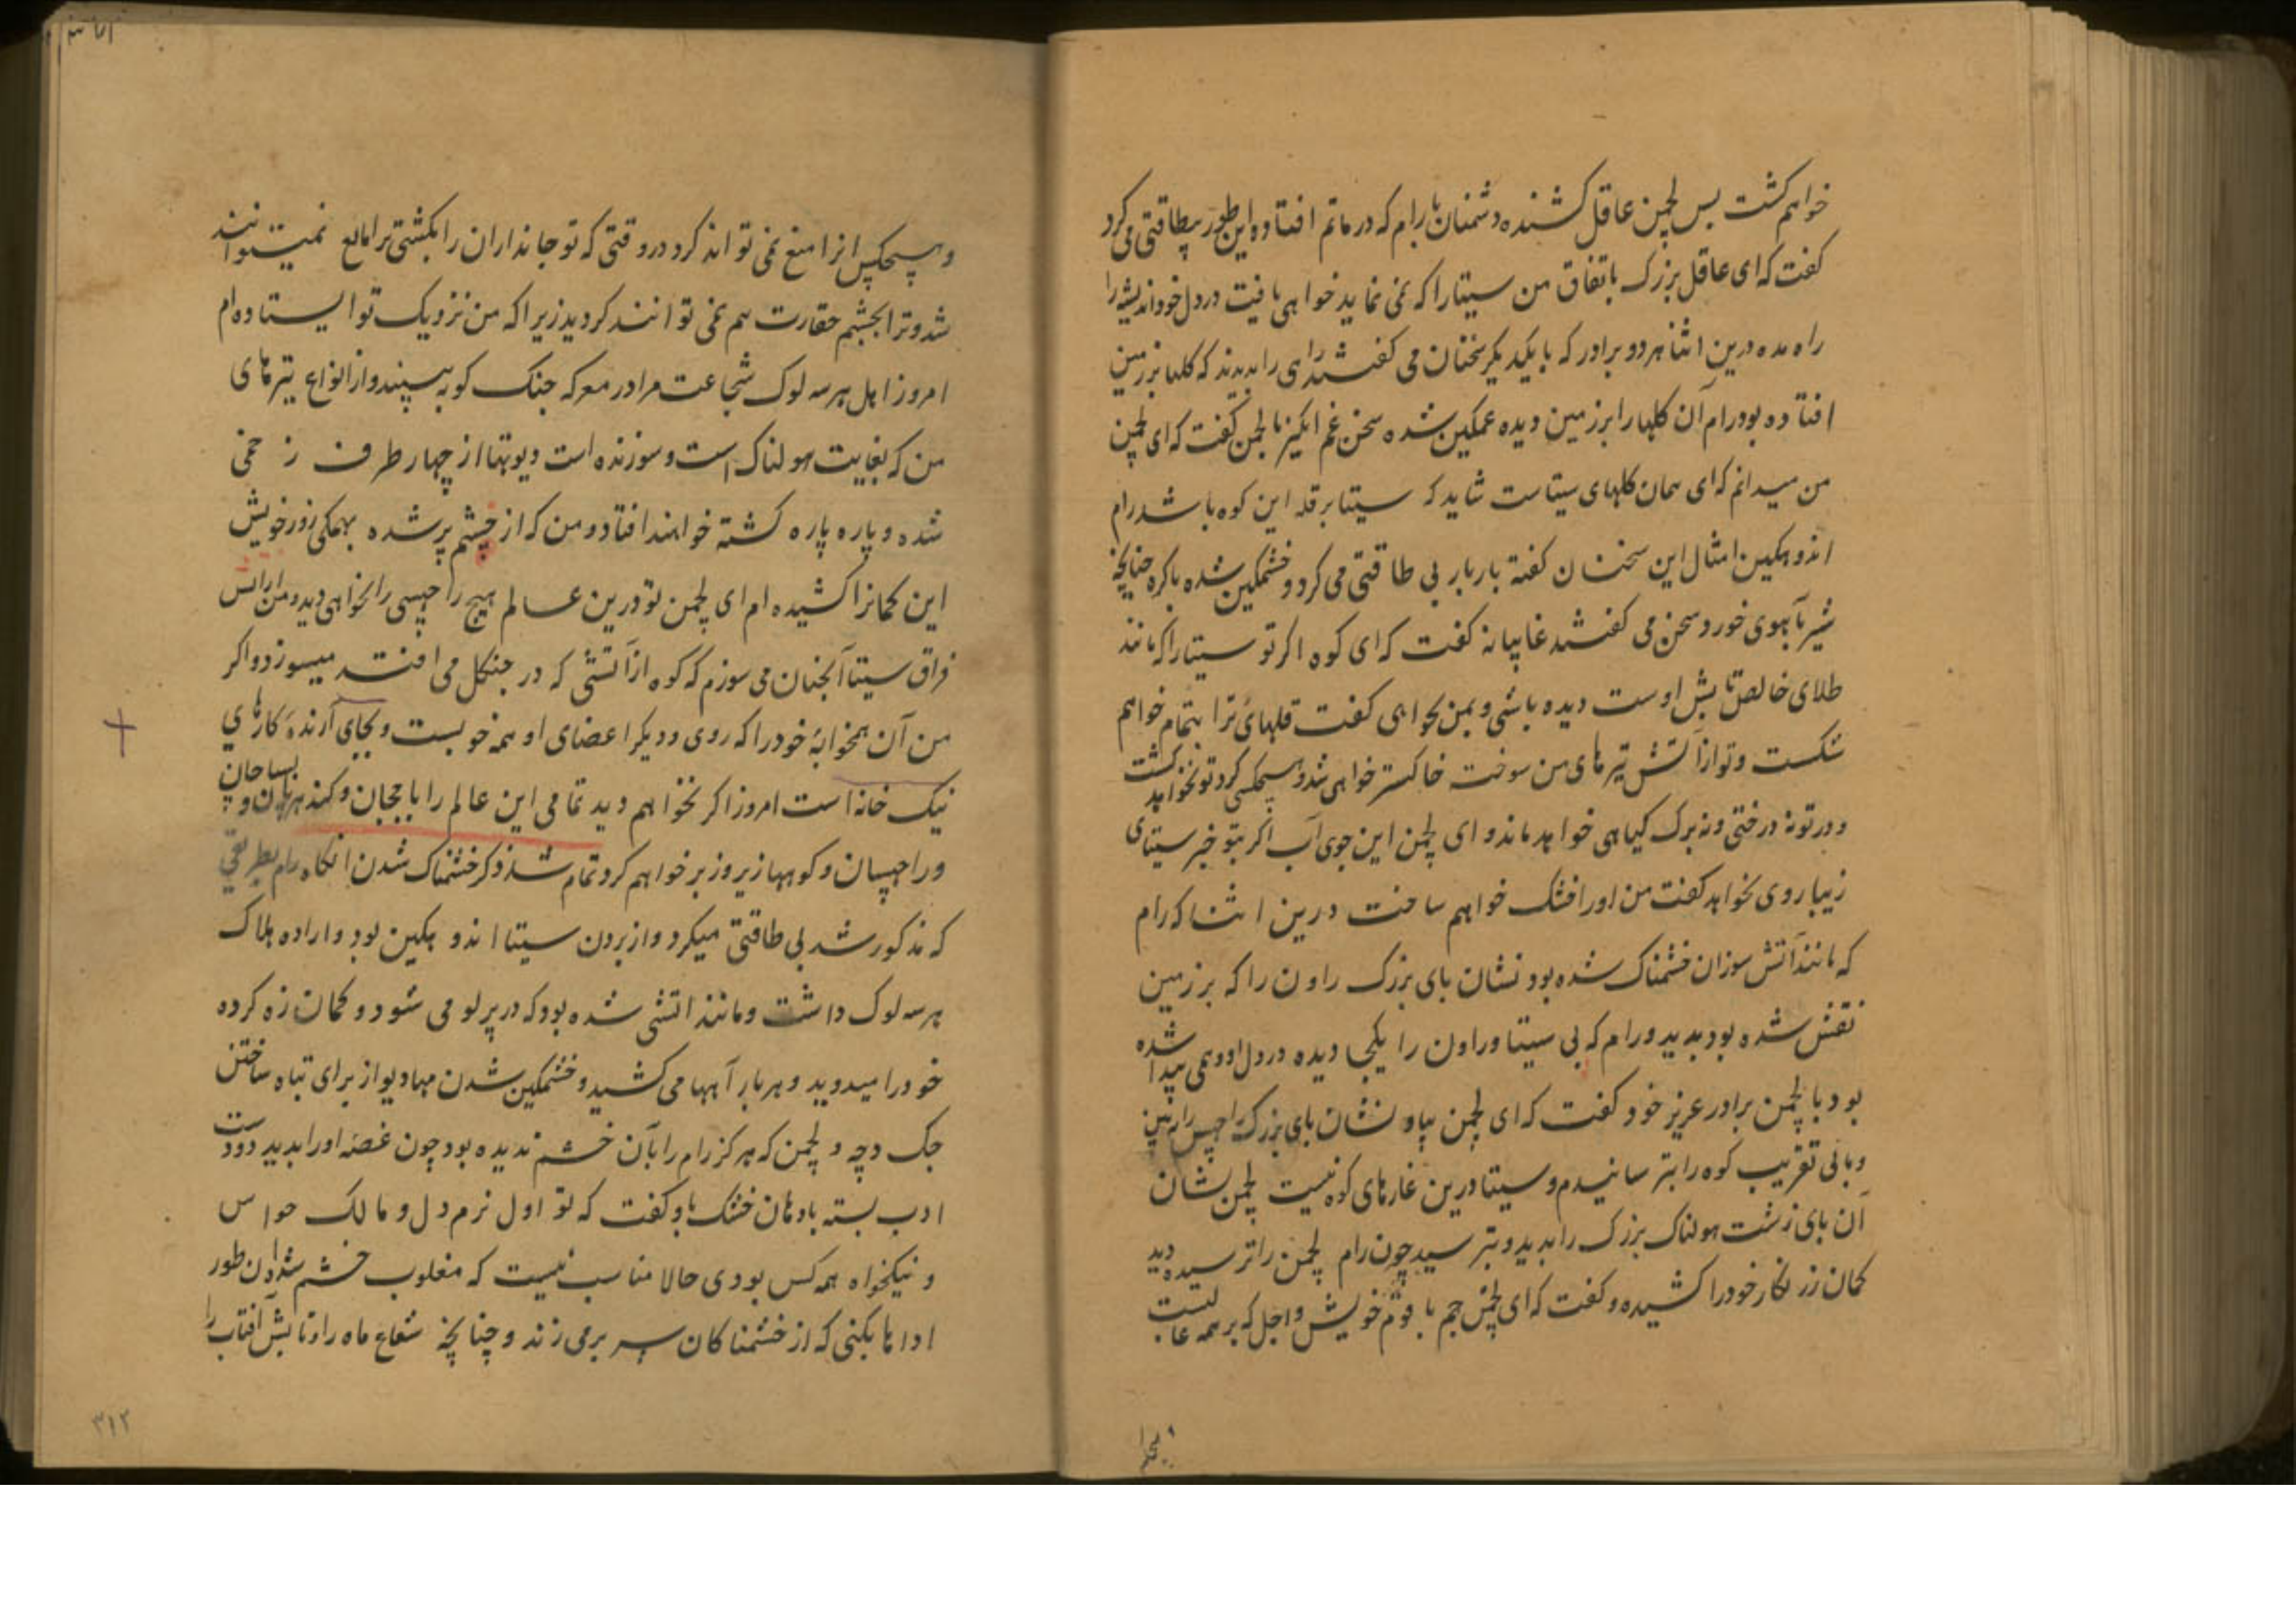 خواهم کشت پس لچمن عاقل کشنده دشمنان با رام که در ماتم افتاده این طور بیطاقتی می کرد
کفت که ای عاقل بزرک باتفاق من سیتا را که نمی نماید خواهی یافت در دل خود اندیشه را
راه مده درین اثنا هر دو برادر که با یکدیکر سخنان می کفتند راهی را بدیدند که کلها بر زمین
افتاده بود رام آن کلها را بر زمین دیده غمکین شده سخن غم انکیز با لچمن کفت که ای لچمن
من میدانم که ای همان کلهای سیتاست شاید که سیتا بر قله این کوه باشد رام
اندوهکین امثال این سخنان کفته بار بار بی طاقتی می کرد و خشمکین شده با کوه چنانچه
شیر با آهوی خورد سخن می کفتند غایبانه کفت که ای کوه اکر تو سیتا را که مانند
طلای خالص تابش اوست دیده باشی و بمن نخواهی کفت قلهائ ترا بتمام خواهم
شکست و تو از آتش تیرهای من سوخت خاکستر خواهی شد و هیچکس کرد تو نخواهد کشت
و در تو نه درختی و نه برک کیاهی خواهد ماند و ای لچمن این جوی آب اکر بتو خبر سیتای
زیبا روی نخواهد کفت من او را خشک خواهم ساخت درین اثنا که رام
که مانند آتش سوزان خشمناک شده بود نشان پای بزرک راون را که بر زمین
نقش شده بود بدید و رام که پی سیتا و راون را یکجا دیده در دل او وهمی پیدا شده
بود با لچمن برادر عزیز خود کفت که ای لچمن بیا و نشان پای بزرک راچهس را به بین
و ما بی تقریب کوه را بترسانیدم و سیتا درین غارهای کوه نیست لچمن نشان
آن پای زشت هولناک بزرک را بدید و بترسید چون رام لچمن را ترسیده دید
کمان زر نکار خود را کشیده و کفت که ای لچمن جم با قوم خویش و اجل که بر همه غالبست
و هیچکس انرا منع نمی تواند کرد در وقتی که تو جانداران را بکشتی ترا مانع نمیتوانند
شد و ترا بچشم حقارت هم نمی توانند کردید زیرا که من نزدیک تو ایستاده ام
امروز اهل هر سه لوک شجاعت مرا در معرکه جنک کو به بینند و از انواع تیرهای
من که بغایت هولناک است و سوزنده است دیوتها از چهار طرف زخمی
شده و پاره پاره کشته خواهند افتاد و من که از خشم پر شده بهمکی زور خویش
این کمانرا کشیده ام ای لچمن تو درین عالم هیچ راچهسی را نخواهی دید و من از اتس
فراق سیتا آنچنان می سوزم که کوه از آتشی که در جنکل می افتد میسوزد و اکر
من آن همخوابهٔ خود را که روی و دیکر اعضای او همه خوبست و بجای آرندهٔ کارهای
نیک خانه است امروز اکر نخواهم دید تمامی این عالم را با ججان و کندهربان و پساچان
و راچهسان و کوهها زیر و زبر خواهم کرد تمام شد ذکر خشمناک شدن انکاه رام بطریقی
که مذکور شد بی طاقتی میکرد و از بردن سیتا اندوهکین بود و اراده هلاک
هر سه لوک داشت و مانند اتشی شده بود که در پرلو می شود و کمان زه کرده
خود را میدوید و هر بار آهها می کشید و خشمکین شدن مهادیو از برای تباه ساختن
جک دچه و لچمن که هرکز رام را بآن خشم ندیده بود چون غصه او را بدید دو دست
ادب بسته با دهان خشک باو کفت که تو اول نرم دل و مالک حواس
و نیکخواه همه کس بودی حالا مناسب نیست که مغلوب خشم شده آن طور
اداها بکنی که از خشمناکان سر بر می زند و چنانچه شعاع ماه را و تابش آفتاب را
۳۱۲